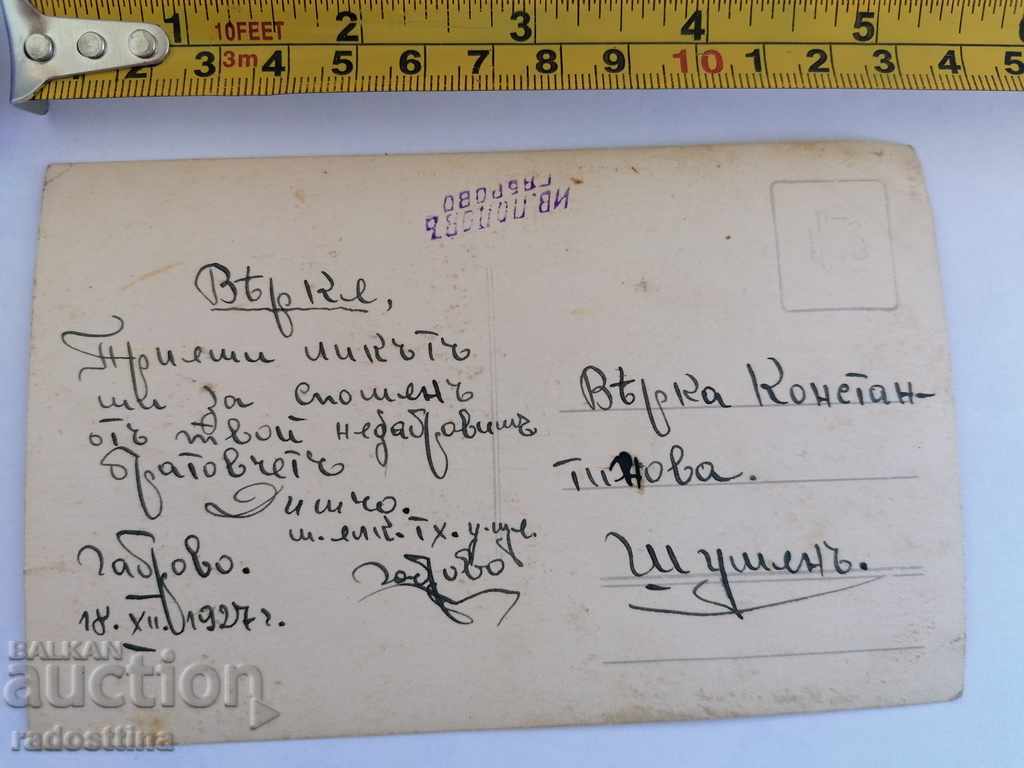 1 10FEET 2 3 4 5 6
2 3 3m 4 5 6 7 8 9 10 1 2 3 4 5
ИВ. ПОПОВЪ
ГАБРОВО
Вѣрке,
Приеми ликътъ
ми за споменъ
отъ твой незабравимъ
братовчетъ
Димчо.
Габрово.
18. XII. 1927 г.
Габрово
Вѣрка Констан-
тинова.
Шуменъ.
BALKAN
auction
radosttina